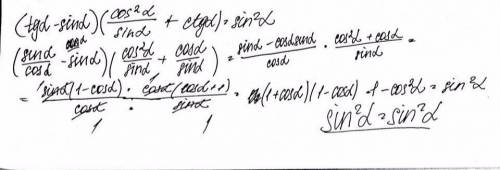 (tgα - sinα)(cos²α/sinα + ctgα) = sin²α
(sinα/cosα - sinα)(cos²α/sinα + cosα/sinα) = (sinα - cosα sinα)/cosα · (cos²α + cosα)/sinα =
= sinα(1 - cosα)/cosα · cosα(cosα + 1)/sinα = (1 + cosα)(1 - cosα) = 1 - cos²α = sin²α
1 1 sin²α = sin²α